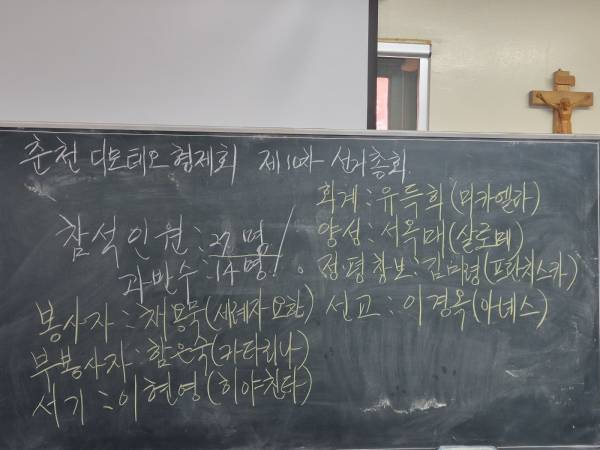 춘천 디모테오 형제회 제10차 선거총회
참석인원 : 27명
과반수 : 14명!
봉사자 : 채용묵(세례자 요한)
부봉사자 : 함은숙(카타리나)
서기 : 이현영(히야친타)
회계 : 유득희(미카엘라)
양성 : 서옥매(살로메)
정·평창보 : 김미령(프란치스카)
선교 : 이경옥(아녜스)